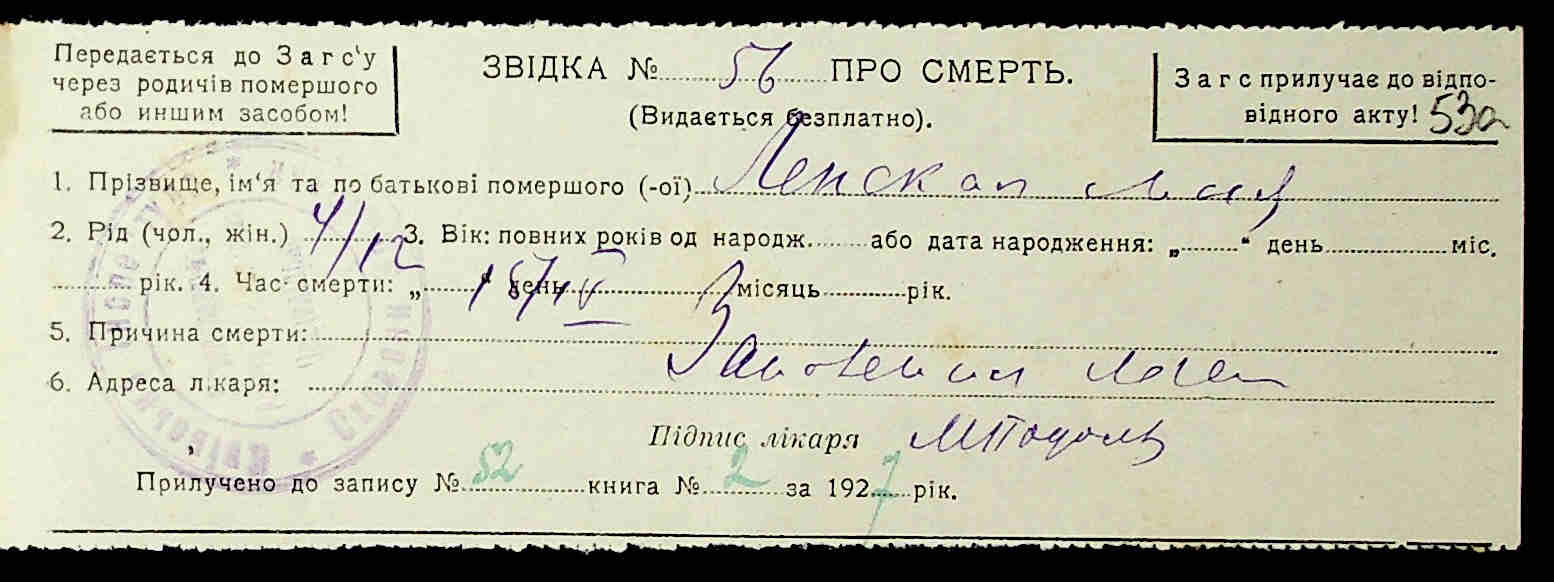 Передається до Загс‘у
через родичів помершого
або иншим засобом!
ЗВІДКА № 56 ПРО СМЕРТЬ.
(Видається безплатно).
Загс прилучає до відпо-
відного акту! 53а
1. Прізвище, ім‘я та по батькові помершого (-ої) Ленская
2. Рід (чол., жін.) 4/12 3. Вік: повних років од народж. або дата народження: „ “ день міс.
рік. 4. Час смерти: „ “ день місяць рік.
5. Причина смерти:
6. Адреса лікаря:
Підпис лікаря
Прилучено до запису № 52 книга № 2 за 1927 рік.